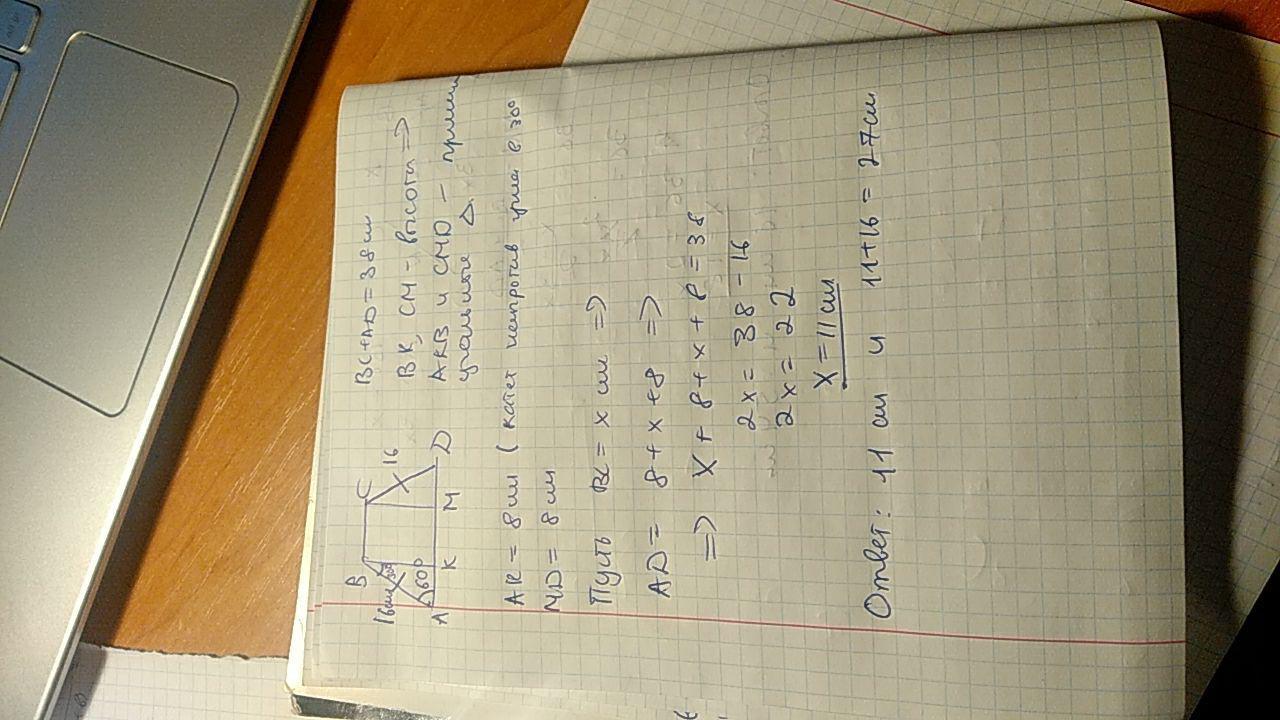 B C 16
16см 30° 60°
A K M D
BC+AD=38см
BK, CM - высоты =>
AKB и CMD - прямоу
гольные Δ.
AK = 8см (катет напротив угла в 30°
MD = 8см
Пусть BC = x см =>
AD = 8+x+8 =>
=> x+8+x+8=38
2x = 38-16
2x = 22
x=11см
Ответ: 11 см и 11+16=27см